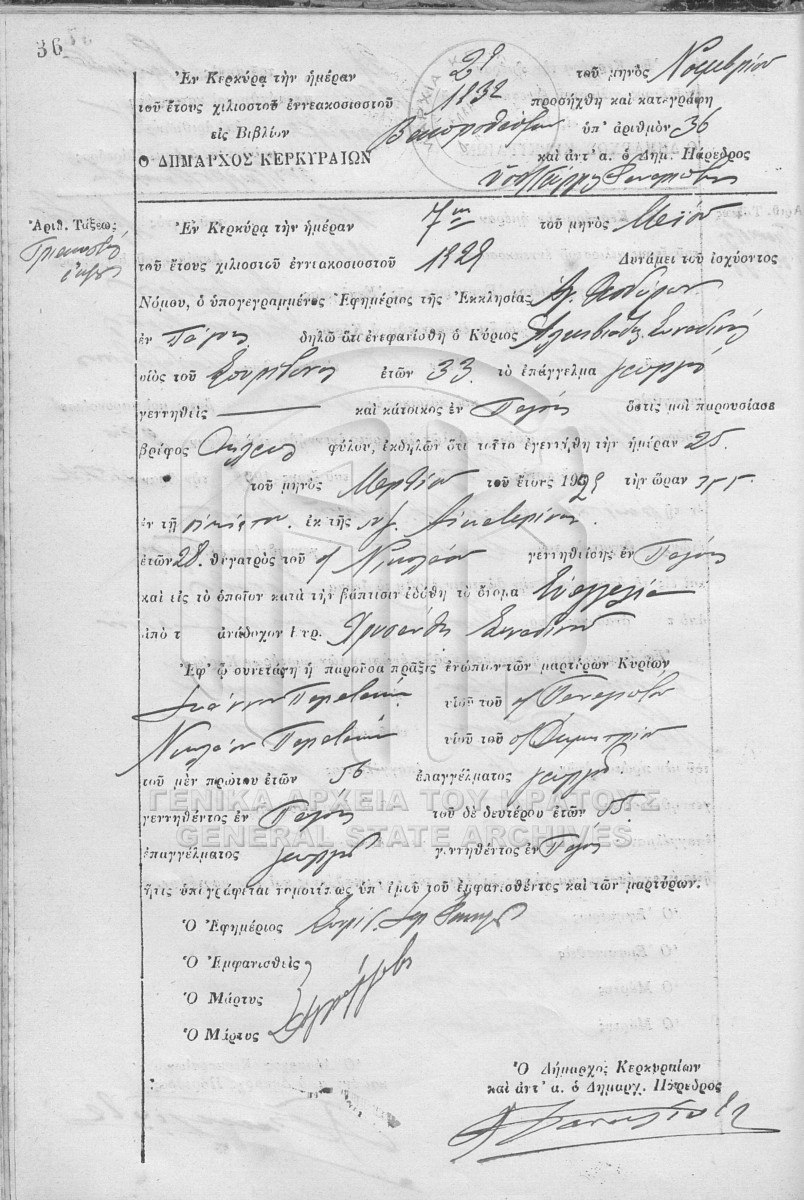 36
Ἐν Κερκύρᾳ τὴν ἡμέραν 29 τοῦ μηνὸς Νοεμβρίου
τοῦ ἔτους χιλιοστοῦ ἐννεακοσιοστοῦ 1932 προσήχθη καὶ κατεγράφη
εἰς Βιβλίον ὑπ' ἀριθμὸν 36
Ὁ ΔΗΜΑΡΧΟΣ ΚΕΡΚΥΡΑΙΩΝ καὶ ἀντ' α. ὁ Δημ. Πάρεδρος
Ἀριθ. Τάξεως
Τριακοστή
ἕκτη
Ἐν Κερκύρᾳ τὴν ἡμέραν 7ην τοῦ μηνὸς Μαΐου
τοῦ ἔτους χιλιοστοῦ ἐννιακοσιοστοῦ 1929 Δυνάμει τοῦ ἰσχύοντος
Νόμου, ὁ ὑπογεγραμμένος Ἐφημέριος τῆς Ἐκκλησίας Ἁγ. Θεοδώρων
ἐν Πάγοις δηλῶ ὅτι ἐνεφανίσθη ὁ Κύριος Ἀλκιβιάδης Συναδινός
υἱὸς τοῦ Σπυρίδωνος ἐτῶν 33 τὸ ἐπάγγελμα γεωργός
γεννηθεὶς — καὶ κάτοικος ἐν Πάγοις ὅστις μοὶ παρουσίασε
βρέφος θήλεος φύλου, ἐκδηλῶν ὅτι τοῦτο ἐγεννήθη τὴν ἡμέραν 25
τοῦ μηνὸς Μαρτίου τοῦ ἔτους 1929 τὴν ὥραν
ἐν τῇ οἰκίᾳ του ἐκ τῆς Αἰκατερίνης
ἐτῶν 28 θυγατρὸς τοῦ Νικολάου γεννηθείσης ἐν Πάγοις
καὶ εἰς τὸ ὁποῖον κατὰ τὴν βάπτισιν ἐδόθη τὸ ὄνομα Εὐαγγελία
ἀπὸ τ ἀνάδοχον Κυρ. Χρυσάνθη Συναδινοῦ
Ἐφ' ᾧ συνετάγη ἡ παροῦσα πρᾶξις ἐνώπιον τῶν μαρτύρων Κυρίων
Ἰωάννου υἱοῦ τοῦ Παναγιώτου
Νικολάου υἱοῦ τοῦ Δημητρίου
τοῦ μὲν πρώτου ἐτῶν 56 ἐπαγγέλματος γεωργοῦ
γεννηθέντος ἐν Πάγοις τοῦ δὲ δευτέρου ἐτῶν 55
ἐπαγγέλματος γεωργοῦ γεννηθέντος ἐν Πάγοις
ἥτις ὑπογράφεται νομοτύπως ὑπ' ἐμοῦ τοῦ ἐμφανισθέντος καὶ τῶν μαρτύρων.
ΓΕΝΙΚΑ ΑΡΧΕΙΑ ΤΟΥ ΚΡΑΤΟΥΣ
GENERAL STATE ARCHIVES
Ὁ Ἐφημέριος
Ὁ Ἐμφανισθεὶς
Ὁ Μάρτυς
Ὁ Μάρτυς
Ὁ Δήμαρχος Κερκυραίων
καὶ ἀντ' α. ὁ Δημαρχ. Πάρεδρος